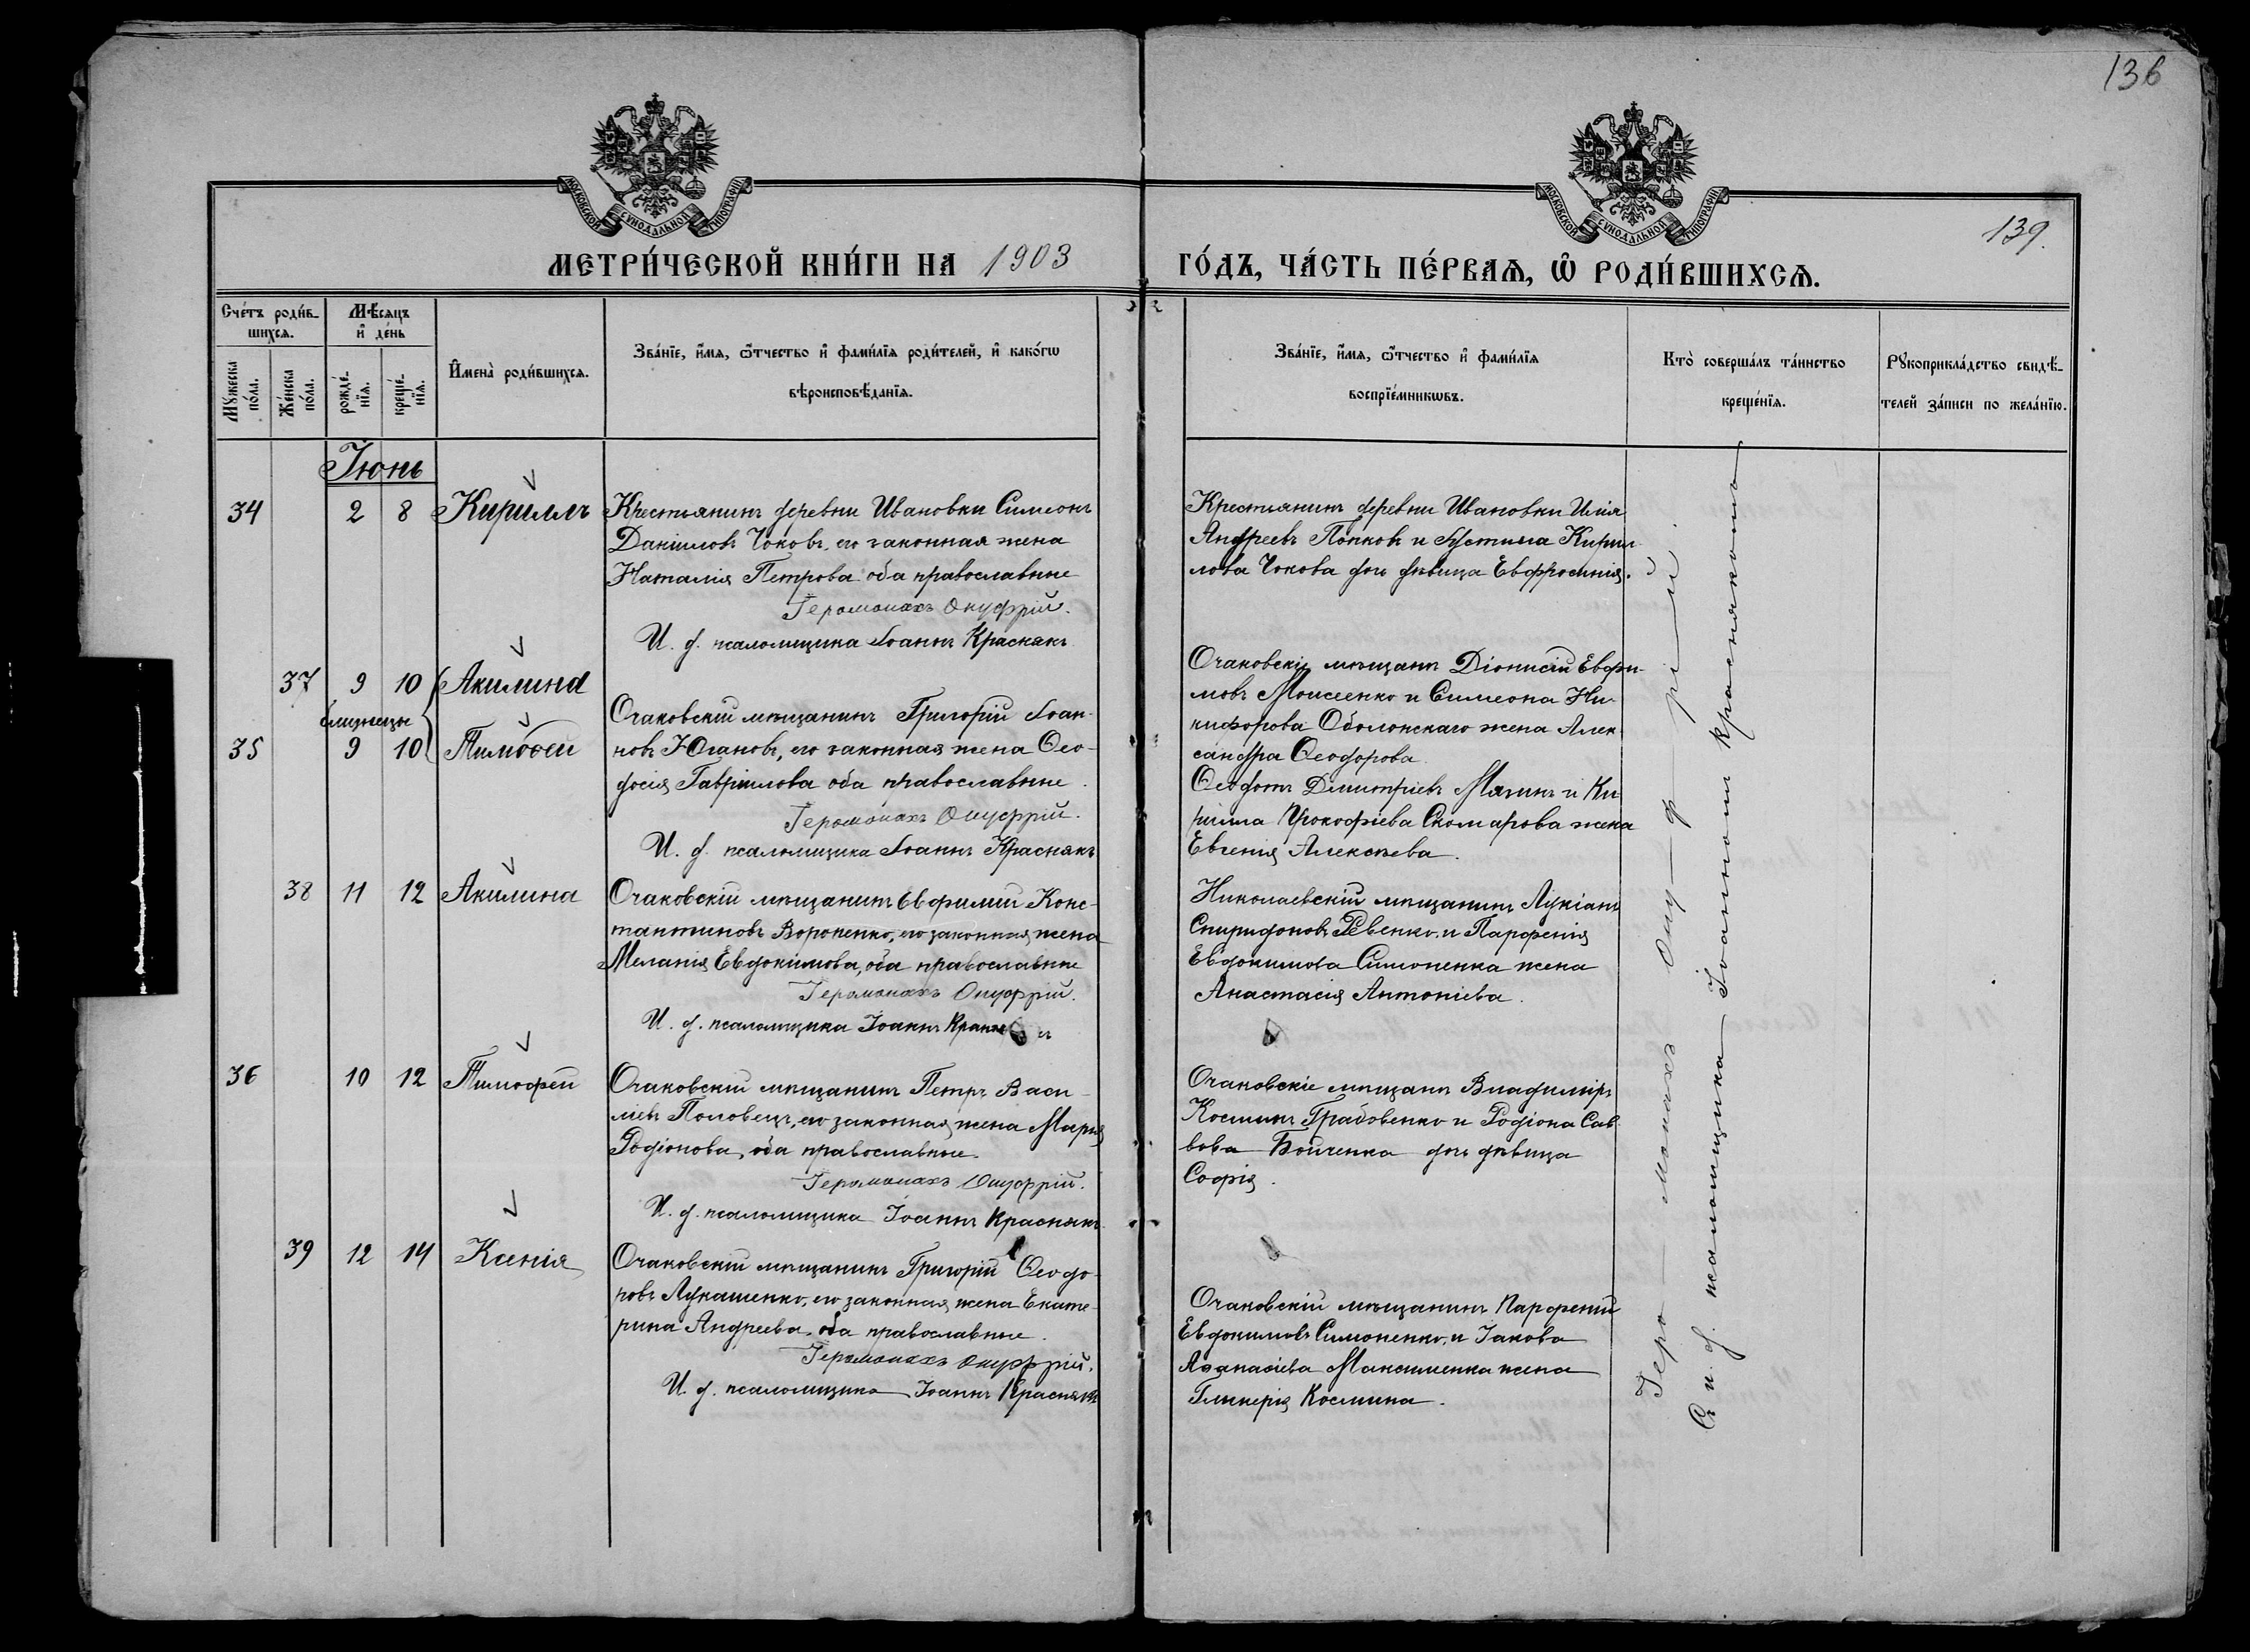 136
139.
МОСКОВСКОЙ СѴНОДАЛЬНОЙ ТИПОГРАФІИ
МОСКОВСКОЙ СѴНОДАЛЬНОЙ ТИПОГРАФІИ
МЕТРИ́ЧЕСКОЙ КНИ́ГИ НА 1903 ГО́ДЪ, ЧА́СТЬ ПЕ́РВАѦ, Ѡ҆ РОДИ́ВШИХСѦ.
Сче́тъ роди́вшихсѧ.
Мꙋ́жеска по́ла.
Же́нска по́ла.
Мѣ́сѧцъ и҆ де́нь
рожде́нїѧ.
креще́нїѧ.
И҆мена̀ роди́вшихсѧ.
Зва́нїе, и҆́мѧ, ѻ҆́тчество и҆ фами́лїѧ роди́телей, и҆ како́гѡ
вѣроисповѣ́данїѧ.
Зва́нїе, и҆́мѧ, ѻ҆́тчество и҆ фами́лїѧ
воспрїе́мникѡвъ.
Кто̀ соверша́лъ та́инство
креще́нїѧ.
Рꙋкоприкла́дство свидѣ́-
телей за́писи по жела́нїю.
Іюнь
34 2 8 Кириллъ
Крестьянинъ деревни Ивановки Симеонъ
Даніиловъ Чоковъ, его законная жена
Наталія Петрова оба православные
Іеромонахъ Онуфрій.
И. д. псаломщика Іоаннъ Краснякъ
Крестьянинъ деревни Ивановки Илія
Андреевъ Попковъ и Густина Кирил-
лова Чокова дочь дѣвица Евфросинія.
37 9 10 Акилина
близнецы
35 9 10 Тимоѳей
Очаковскій мѣщанинъ Григорій Іоан-
новъ Югановъ, его законная жена Ѳео-
досія Гавріилова оба православные.
Іеромонахъ Онуфрій.
И. д. псаломщика Іоаннъ Краснякъ
Очаковскіе мѣщане Діонисій Евфи-
мовъ Моисеенко и Симеона Ни-
кифорова Оболонскаго жена Алек-
сандра Ѳеодорова.
Ѳеодотъ Димитріевъ Мягинъ и Ки-
рилла Прокофіева Скомарова жена
Евгенія Алексѣева.
38 11 12 Акилина
Очаковскій мѣщанинъ Евфимій Конс-
тантиновъ Вороненко, его законная жена
Меланія Евдокимова, оба православные
Іеромонахъ Онуфрій.
И. д. псаломщика Іоаннъ
Николаевскій мѣщанинъ Лукіанъ
Спиридоновъ Ревенко, и Парфенія
Евдокимова Симоненка жена
Анастасія Антоніева.
36 10 12 Тимофей
Очаковскій мѣщанинъ Петръ Васи-
ліевъ Половецъ, его законная жена Марія
Родіонова, оба православные.
Іеромонахъ Онуфрій.
И. д. псаломщика Іоаннъ Краснякъ.
Очаковскіе мѣщане Владиміръ
Косминъ Грабовенко и Родіона Сав-
вова Бойченка дочь дѣвица
Софія.
39 12 14 Ксенія
Очаковскій мѣщанинъ Григорій Ѳеодо-
ровъ Лукашенко, его законная жена Екате-
рина Андреева, оба православные.
Іеромонахъ Онуфрій.
И. д. псаломщика Іоаннъ Краснякъ
Очаковскій мѣщанинъ Парфеній
Евдокимовъ Симоненко, и Іакова
Аѳанасіева Максименка жена
Гликерія Космина.
Іеро—монахъ Онуфрій.
Съ и. д. псаломщика Іоанномъ Краснякомъ